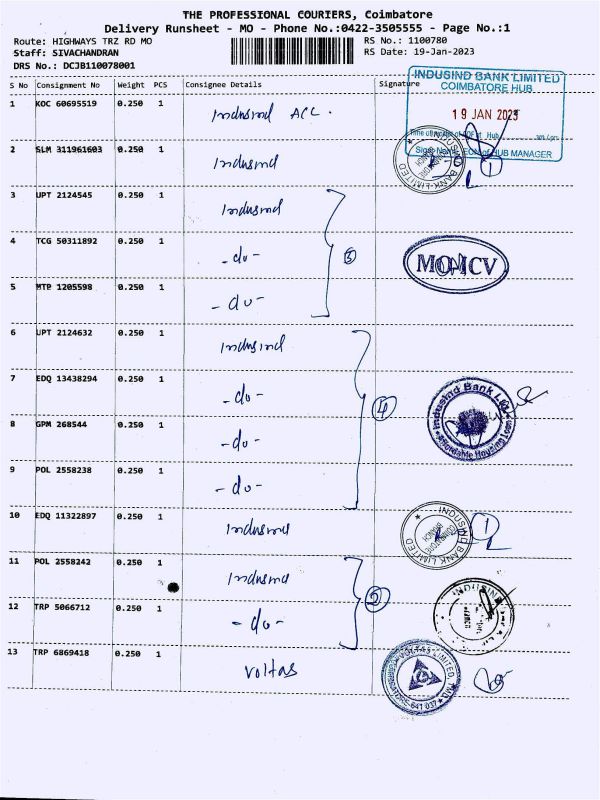 THE PROFESSIONAL COURIERS, Coimbatore
Delivery Runsheet - MO - Phone No.:0422-3505555 - Page No.:1
Route: HIGHWAYS TRZ RD MO
RS No.: 1100780
Staff: SIVACHANDRAN
RS Date: 19-Jan-2023
DRS No.: DCJB110078001
S No Consignment No Weight PCS Consignee Details Signature
INDUSIND BANK LIMITED
COIMBATORE HUB
19 JAN 2023
HUB MANAGER
1 KOC 60695519 0.250 1 Indusind ACL.
2 SLM 311961603 0.250 1 Indusind
INDUSIND BANK LIMITED
1
3 UPT 2124545 0.250 1 Indusind
4 TCG 50311892 0.250 1 -do- 3
MOMCV
5 MTP 1205598 0.250 1 -do-
6 UPT 2124632 0.250 1 Indusind
7 EDQ 13438294 0.250 1 -do- 4
IndusInd Bank Ltd
Affordable Housing Loan
8 GPM 268544 0.250 1 -do-
9 POL 2558238 0.250 1 -do-
10 EDQ 11322897 0.250 1 Indusind
INDUSIND BANK LIMITED
1
11 POL 2558242 0.250 1 Indusind
INDUSIND
12 TRP 5066712 0.250 1 -do- 2
13 TRP 6869418 0.250 1 Voltas
VOLTAS LIMITED
COIMBATORE-641 037